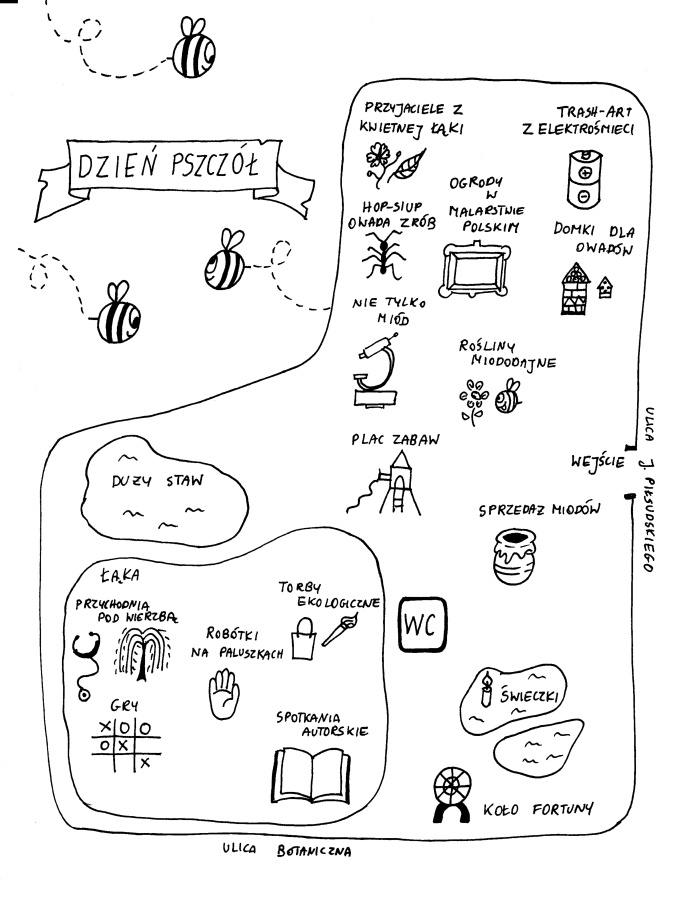 DZIEŃ PSZCZÓŁ
PRZYJACIELE Z
KWIETNEJ ŁĄKI
TRASH-ART
Z ELEKTROŚMIECI
OGRODY
W
MALARSTWIE
POLSKIM
HOP-SIUP
OWADA ZRÓB
DOMKI DLA
OWADÓW
NIE TYLKO
MIÓD
ROŚLINY
MIODODAJNE
PLAC ZABAW
WEJŚCIE
ULICA J. PIŁSUDSKIEGO
DUŻY STAW
SPRZEDAŻ MIODÓW
ŁĄKA
PRZYCHODNIA
POD WIERZBĄ
TORBY
EKOLOGICZNE
ROBÓTKI
NA PALUSZKACH
WC
GRY
X O O
O X
X
ŚWIECZKI
SPOTKANIA
AUTORSKIE
KOŁO FORTUNY
ULICA BOTANICZNA